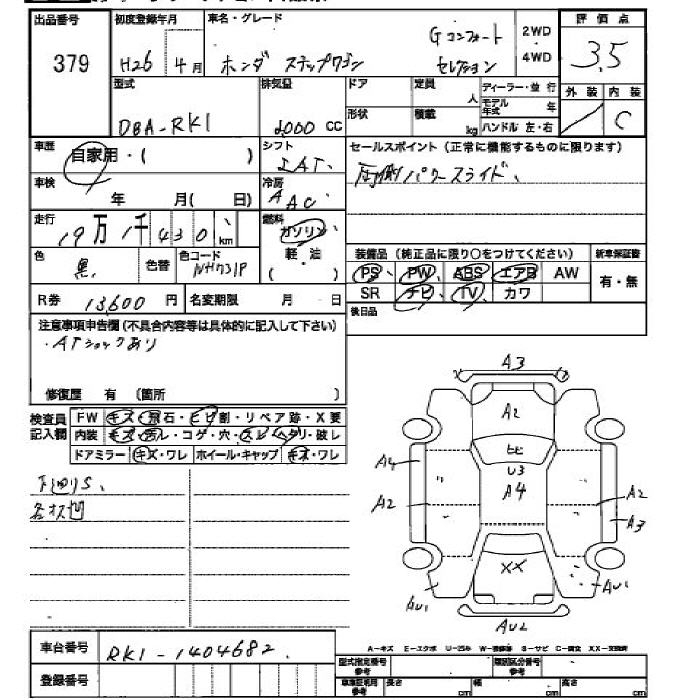 出品番号 初度登録年月 車名・グレード 評価点
379 H26 4月 ホンダ ステップワゴン Gコンフォート セレクション 2WD 4WD 3.5
型式 排気量 ドア 定員 人 ディーラー・並行 外装 内装
DBA-RK1 2000 cc 形状 積載 kg モデル年式 年 ハンドル 左・右 C
車歴 自家用・( ) シフト IAT. セールスポイント (正常に機能するものに限ります)
車検 年 月( 日) 冷房 AAC 両側パワースライド、
走行 19万1千430km 燃料 ガソリン 軽・油 ( )
装備品 (純正品に限り○をつけてください) 新車保証書
色 黒 色替 色コード NH731P PS PW ABS エアB AW 有・無
R券 13,600円 名変期限 月 日 SR ナビ TV カワ
後日品
注意事項申告欄(不具合内容等は具体的に記入して下さい)
・ATショックあり
修復歴 有 (箇所 )
検査員記入欄 FW キズ・飛石・ヒビ割・リペア跡・X要
内装 キズ・汚レ・コゲ・穴・スレ・ヘタリ・破レ
ドアミラー キズ・ワレ ホイール・キャップ キズ・ワレ
下回りS、
各オス凹
A3
A2
ヒビ
U3
A4
A4
A2
A2
A3
XX
AU1
AU1
AU2
車台番号 RK1-1404682.
登録番号
A-キズ E-エクボ U-凹み W-補修跡 S-サビ C-腐食 XX-交換済
型式指定番号 参考 類別区分番号 参考
車庫証明用 参考 長さ cm 幅 cm 高さ cm